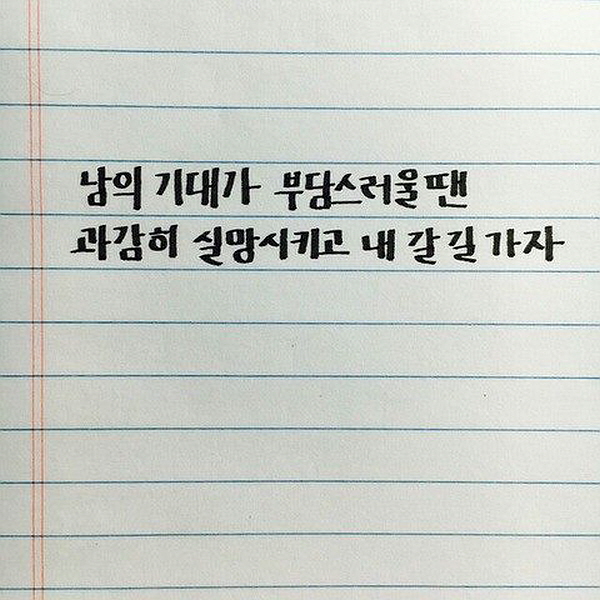 남의 기대가 부담스러울 땐
과감히 실망시키고 내 갈 길 가자